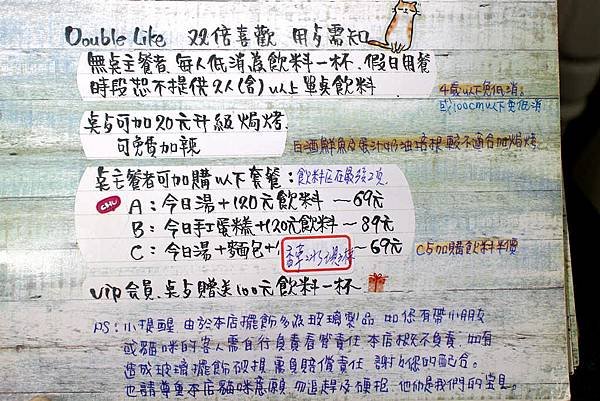 Double Like 双倍喜歡 用餐需知
無桌主餐者、每人低消為飲料一杯、假日用餐
時段恕不提供2人(含)以上單桌飲料
4歲以下免低消。
或100cm以下免低消
桌上可加20元升級焗烤.
可免費加辣
白酒鮮魚及 奶油培根較不適合加焗烤
桌主餐者可加購以下套餐：飲料區在最後2頁
CHU
A：今日湯+120元飲料 — 69元
B：今日手工蛋糕+120元飲料 — 89元
C：今日湯+麵包+ — 69元
C加購飲料半價
VIP會員.桌贈送100元飲料一杯
PS：小提醒 由於本店擺飾多為玻璃製品 如您有帶小朋友
或貓咪的客人需自行負責看管責任 本店概不負責 如有
造成玻璃擺飾破損 需負賠償責任 謝謝您的配合。
也請尊重本店貓咪意願 勿追趕及硬抱 他們是我們的寶貝。